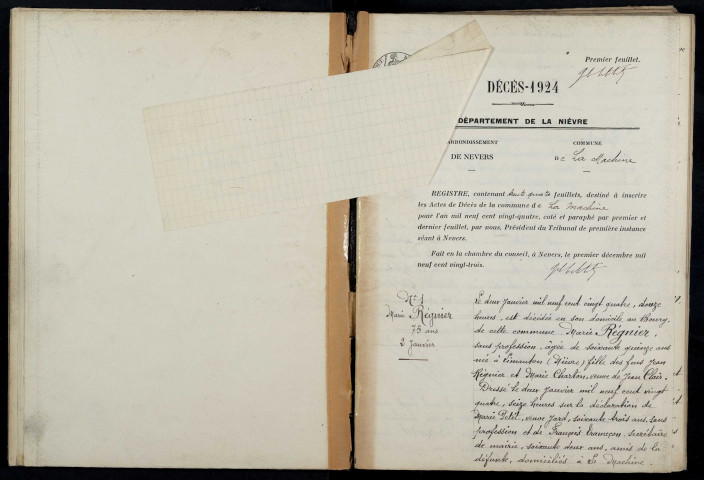 Premier feuillet.
DÉCÈS-1924
DÉPARTEMENT DE LA NIÈVRE
ARRONDISSEMENT
COMMUNE
DE NEVERS
DE La Machine
REGISTRE, contenant feuillets, destiné à inscrire
les Actes de Décès de la commune de La Machine
pour l'an mil neuf cent vingt-quatre, coté et paraphé par premier et
dernier feuillet, par vous, Président du Tribunal de première instance
séant à Nevers.
Fait en la chambre du conseil, à Nevers, le premier décembre mil
neuf cent vingt-trois.
N° 1
Marie Régnier
75 ans
2 Janvier
Le deux janvier mil neuf cent vingt quatre, douze
heures, est décédée en son domicile au Bourg,
de cette commune Marie Régnier,
sans profession, âgée de soixante quinze ans
née à Limanton (Nièvre) fille des feus Jean
Régnier et Marie Charton, veuve de Jean Clair.
Dressé le deux janvier mil neuf cent vingt
quatre, seize heures sur la déclaration de
Marie Petit, veuve Jard, soixante trois ans, sans
profession et de François Trameçon, secrétaire
de mairie, soixante deux ans, amis de la
défunte, domiciliés à La Machine.